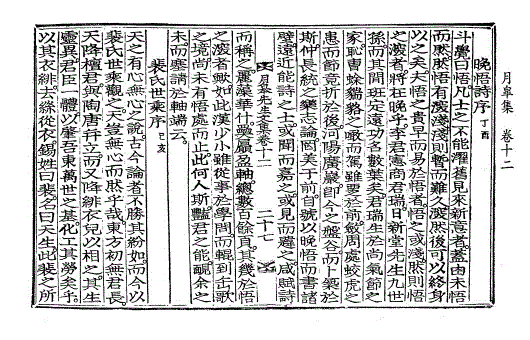 月皐集 卷十二
晚悟詩序 丁酉
斗覺曰悟凡士之不能濯舊見來新意者蓋由未悟
而然然悟有深淺淺則暫而難久深然後可以終身
以之矣夫悟之貴早而易於悟者悟之或淺然則悟
之深者將在晚乎李君憲商君瑞日新堂先生九世
孫而其間班定遠功名數葉矣君瑞生於尚氣節之
家恥曹蜍貉之噉而駕雖要於前周處蛟虎之
患而節竟折於後河陽廣麓即今之盤谷而卜築於
斯仲長統之樂志論美于前自號以晚悟而書諸
壁遠近能詩之士或聞而嘉之或見而之咸賦詩
月皐先生文集卷十二 二十七
而稱之麗藻華什纍盈軸總數百餘頁其幾於悟
之深者歟如此漢少小雖從事於學問而到古歌
之境尚未有悟處而止此何人斯豔君之能余之
未而塞請於軸端云
裴氏世乘序 己亥
天之有心無心之說古今論者不勝其紛如而今以
裴氏世乘觀之天豈無心而然乎哉東方初無君長
天降檀君與陶唐並立而又降緋衣兒以相之其生
靈異君臣一體以肇吾東萬世之基化工其勞矣乎
以其衣緋去絲從衣錫姓曰裴名曰天生此裴之所